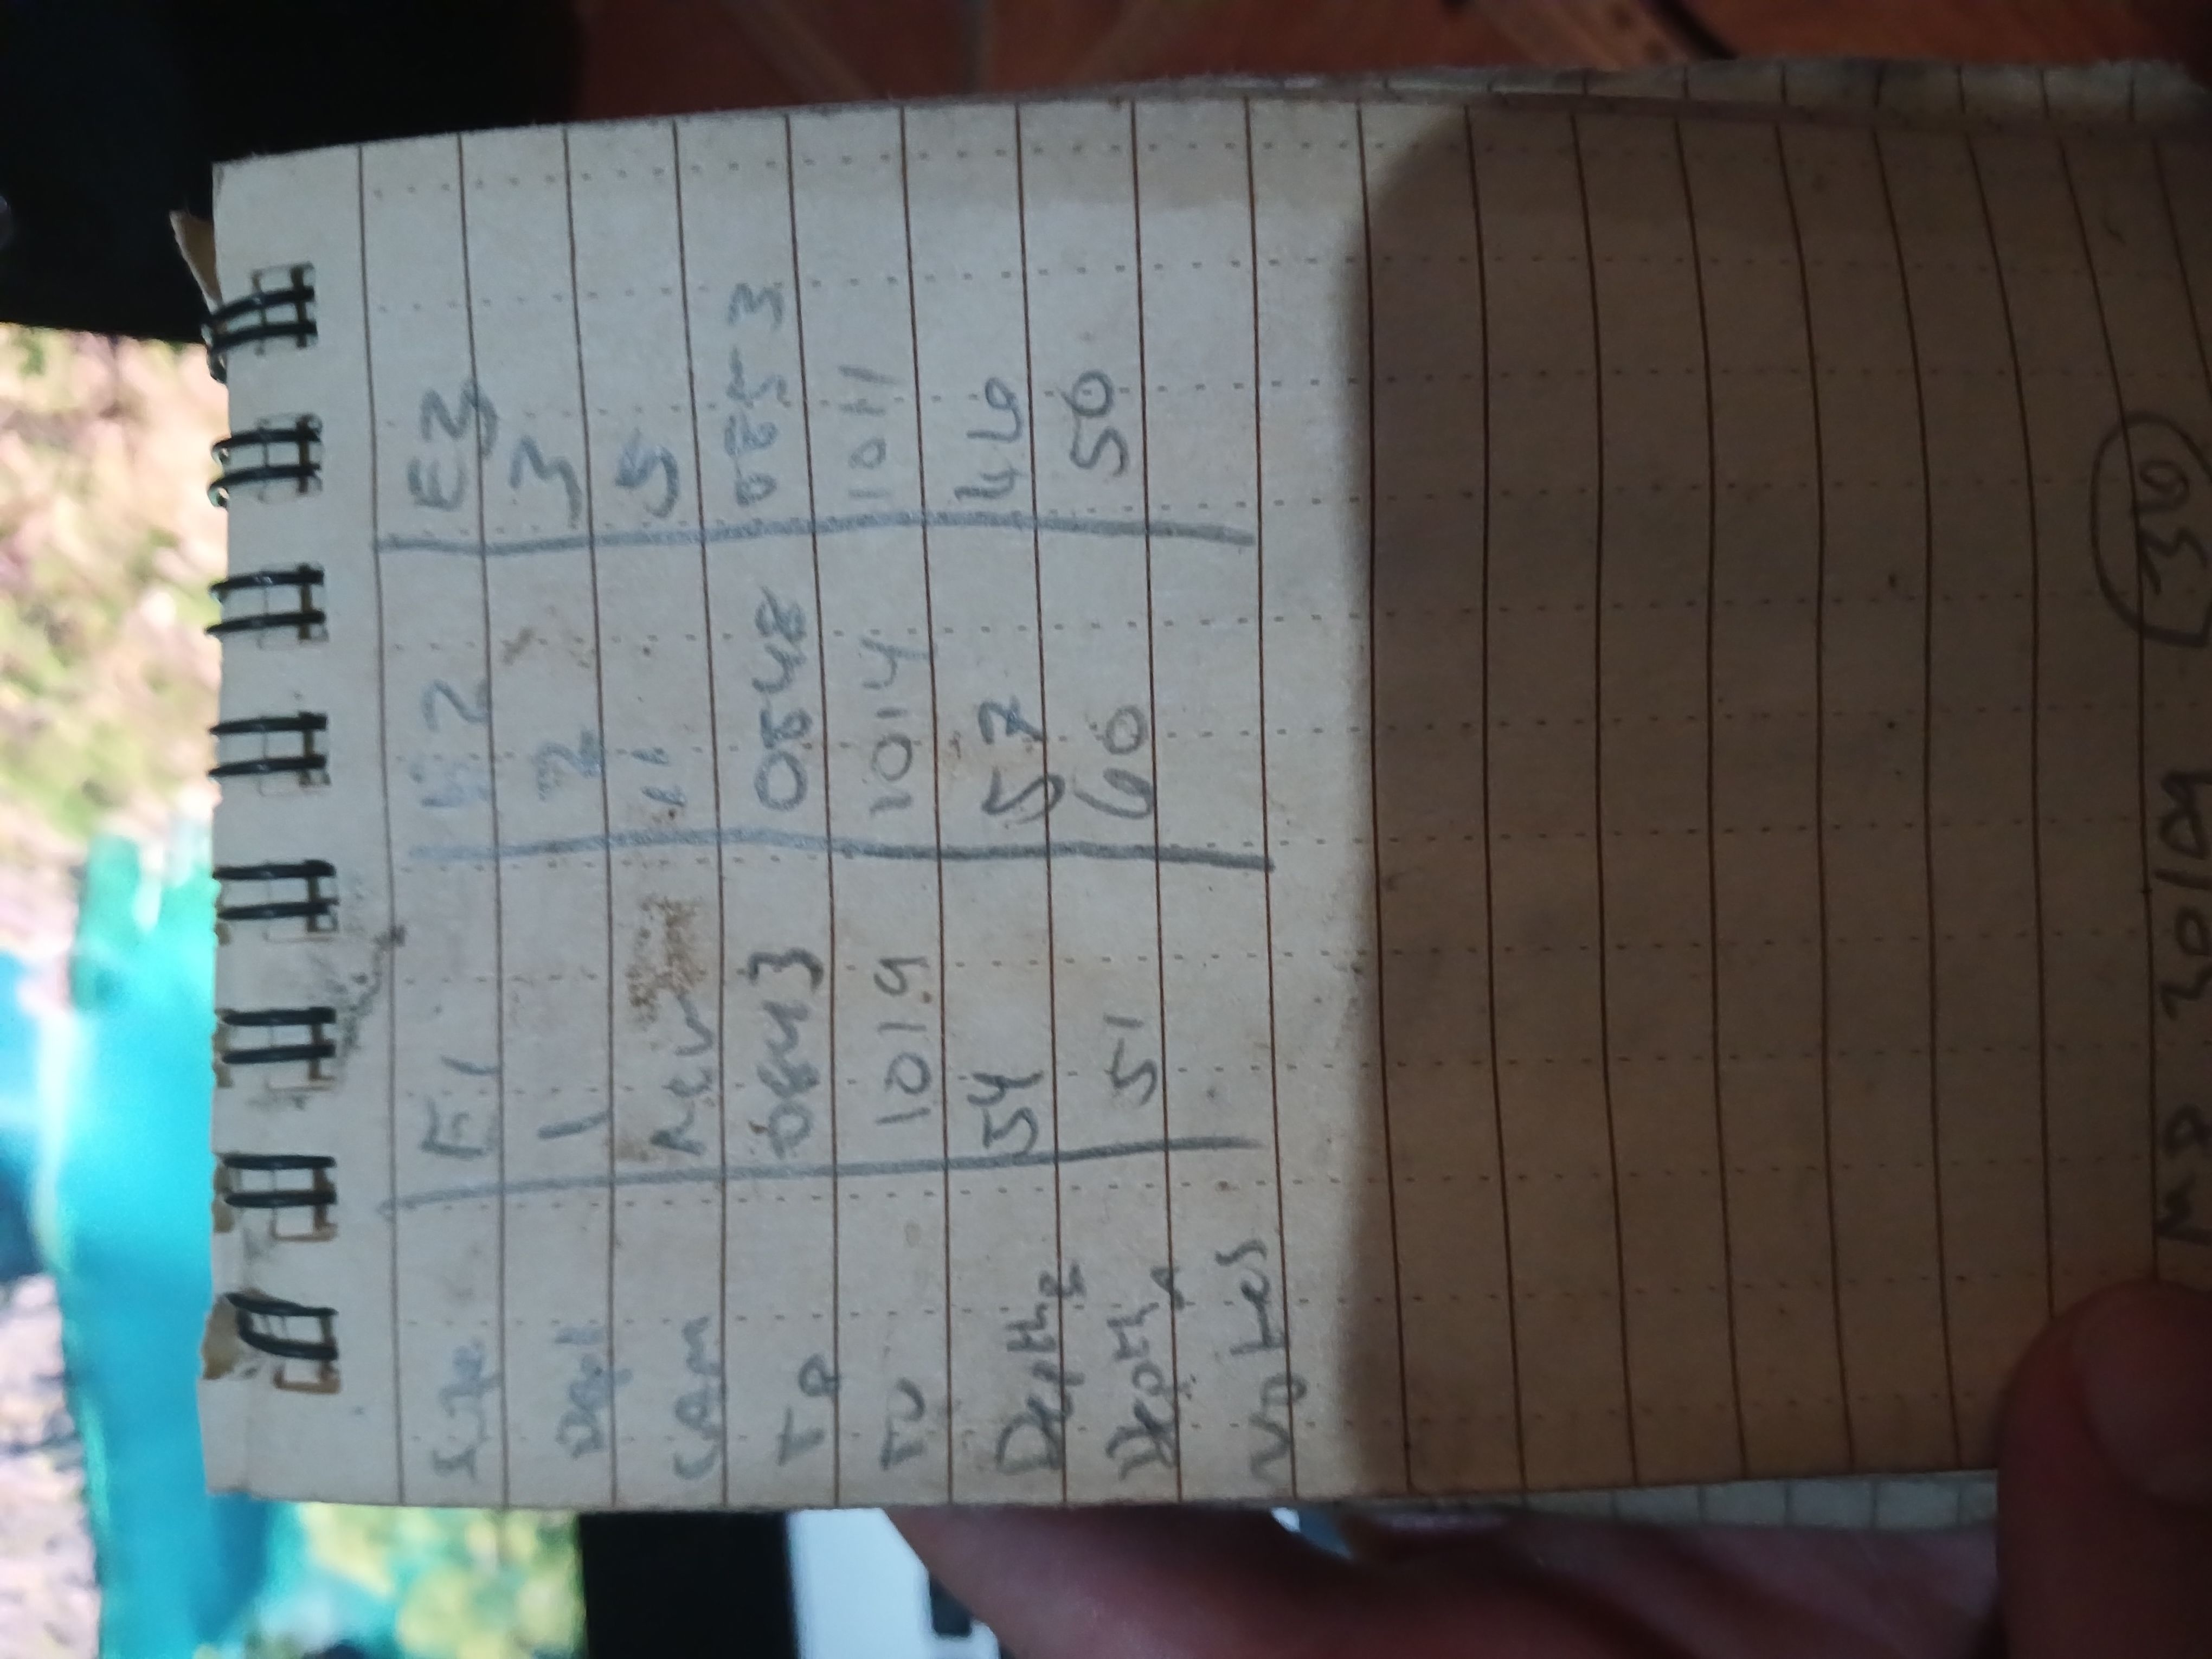 Site E1 E2 E3
Depl 1 2 3
CAM New '' 5
TD 0843 0848 0853
TU 1019 1014 1011
DepthB 54 57 46
DepthA 51 60 50
Notes
30/09 36